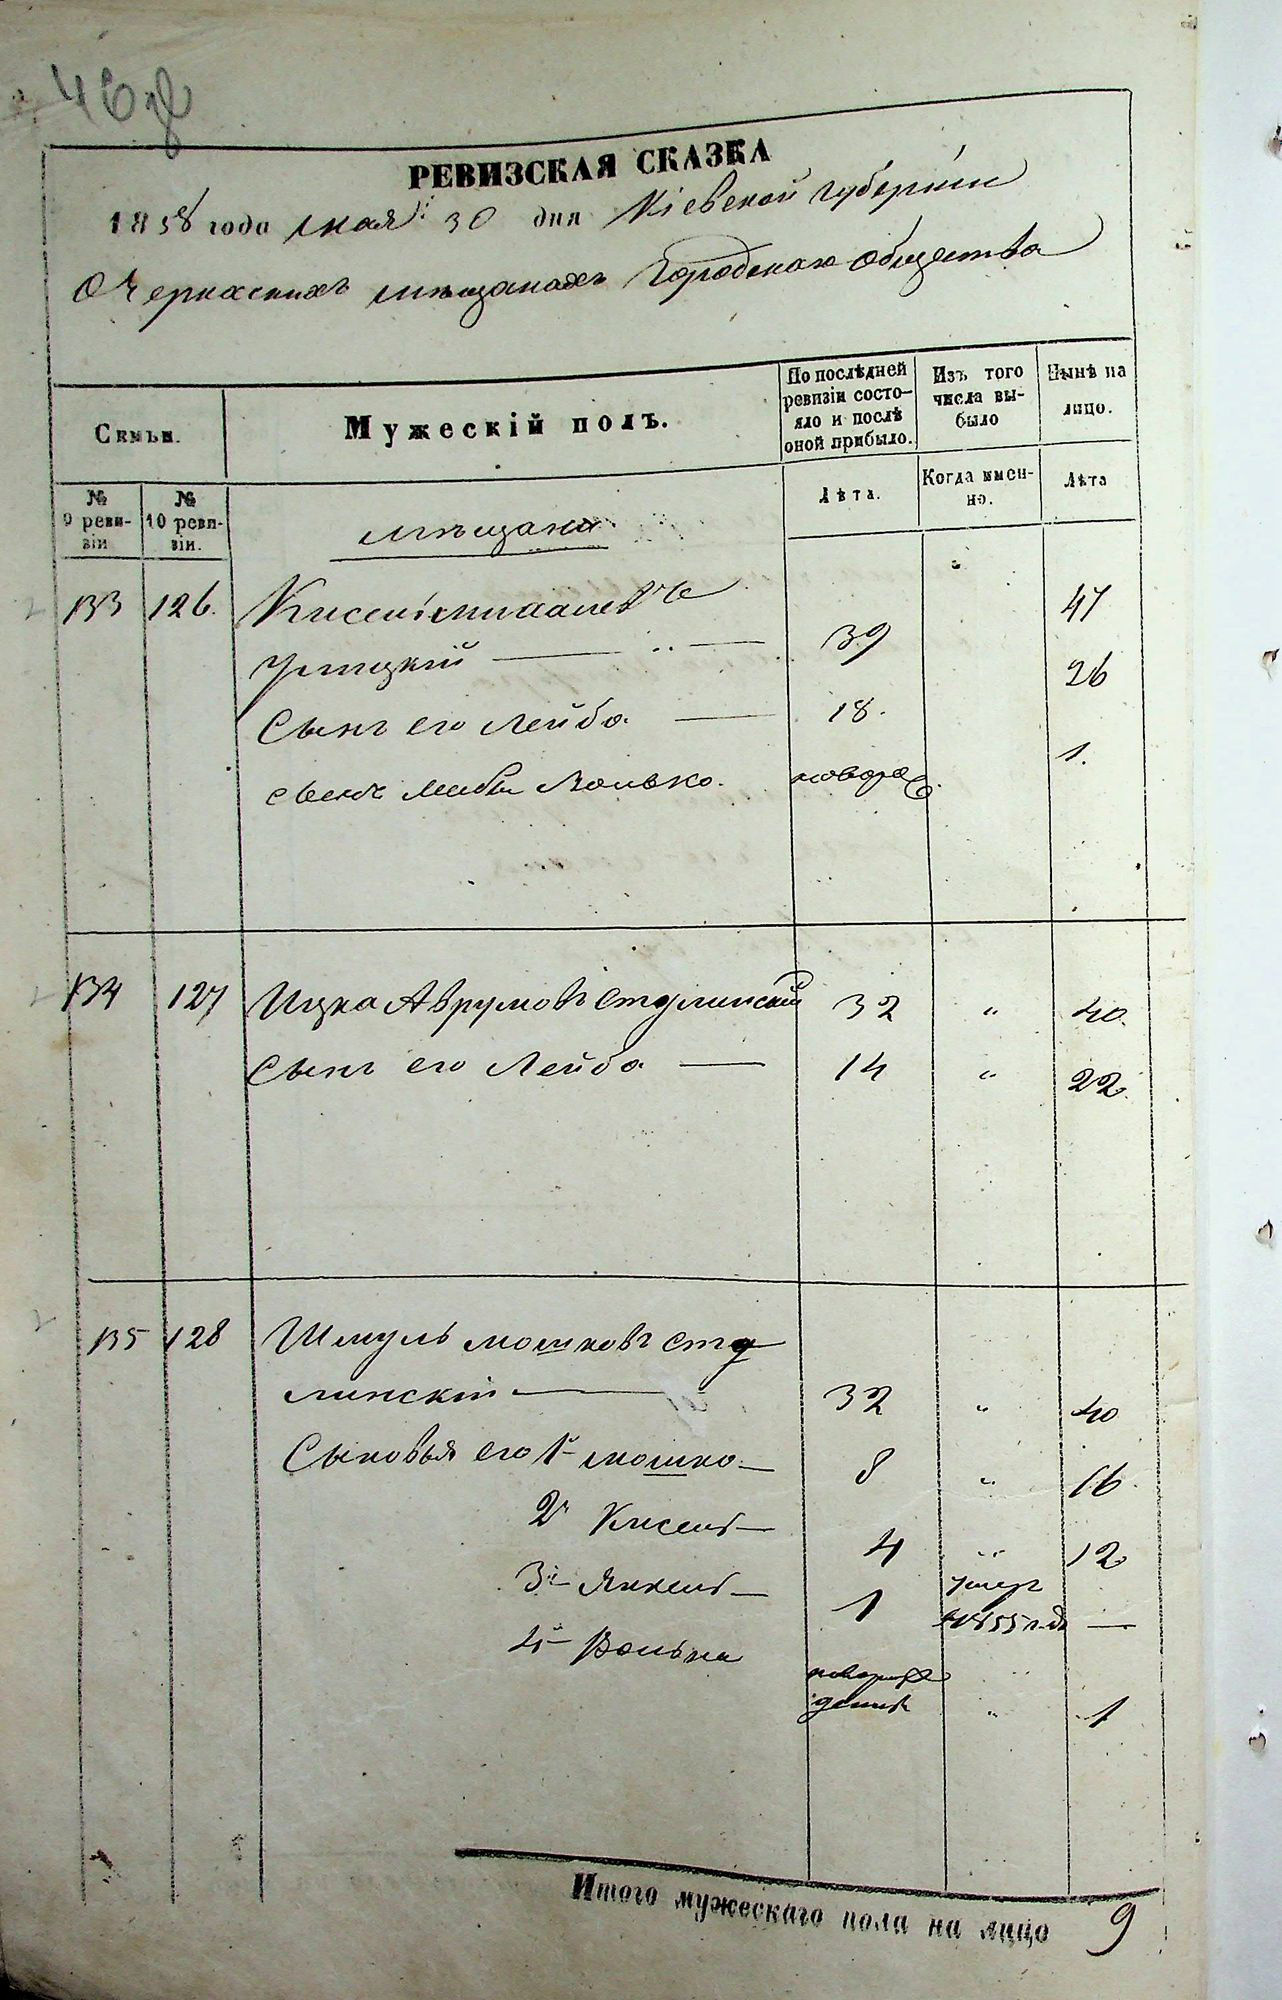 РЕВИЗСКАЯ СКАЗКА
1858 года мая 30 дня Кіевской губерніи
О Черкасскихъ мѣщанахъ Городскаго общества
Семьи.
Мужескій полъ.
По послѣдней ревизіи состо-яло и послѣ оной прибыло.
Изъ того числа вы-было
Нынѣ на лицо.
№ 9 реви-зіи
№ 10 реви-зіи.
мѣщане
Лѣта.
Когда имен-но.
Лѣта
133 126. Кисель
39 47
Сынъ его Лейба 18. 26
сынъ Лейбы Волько. 1.
134 127 Ицка Аврумовъ Студлинскій 32 „ 40
Сынъ его Лейба — 14 „ 22
135 128 Шмуль Мошковъ Студ
линскій — 32 „ 40
Сыновья его 1й Мошко — 8 „ 16
2й Кисель — 4 „ 12
3й Янкель — 1 умер 1855 года —
4й Волька новорож
денный „ 1
Итого мужескаго пола на лицо 9